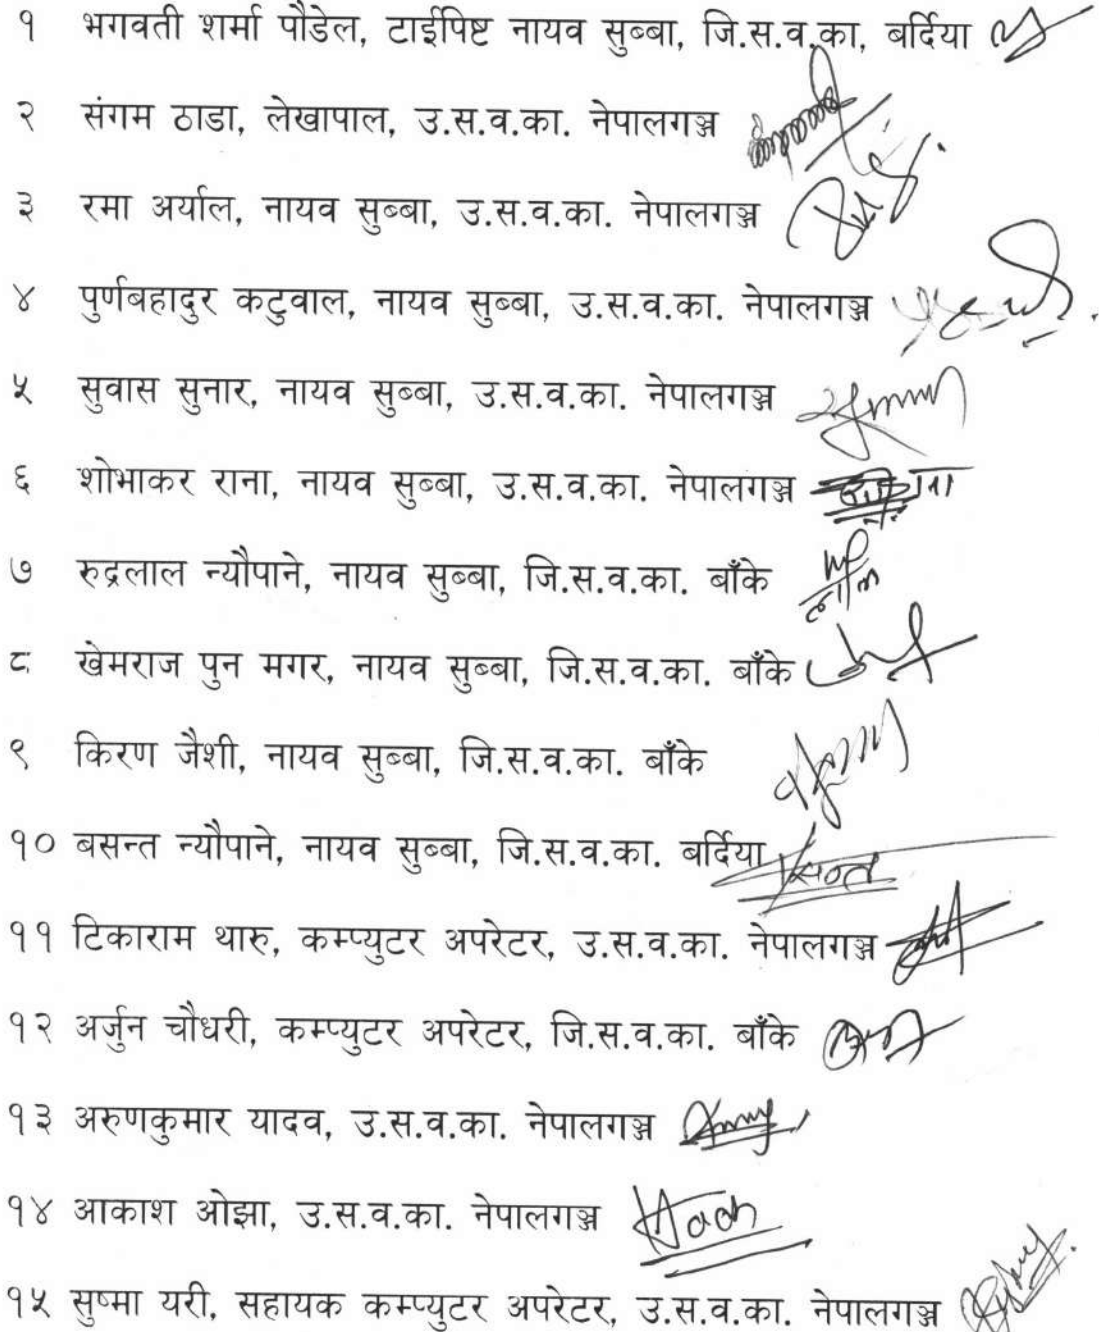 १ भगवती शर्मा पौडेल, टाईपिष्ट नायव सुब्बा, जि.स.व.का, बर्दिया
२ संगम ठाडा, लेखापाल, उ.स.व.का. नेपालगञ्ज
३ रमा अर्याल, नायव सुब्बा, उ.स.व.का. नेपालगञ्ज
४ पुर्णबहादुर कटुवाल, नायव सुब्बा, उ.स.व.का. नेपालगञ्ज
५ सुवास सुनार, नायव सुब्बा, उ.स.व.का. नेपालगञ्ज
६ शोभाकर राना, नायव सुब्बा, उ.स.व.का. नेपालगञ्ज
७ रुद्रलाल न्यौपाने, नायव सुब्बा, जि.स.व.का. बाँके
८ खेमराज पुन मगर, नायव सुब्बा, जि.स.व.का. बाँके
९ किरण जैशी, नायव सुब्बा, जि.स.व.का. बाँके
१० बसन्त न्यौपाने, नायव सुब्बा, जि.स.व.का. बर्दिया
११ टिकाराम थारु, कम्प्युटर अपरेटर, उ.स.व.का. नेपालगञ्ज
१२ अर्जुन चौधरी, कम्प्युटर अपरेटर, जि.स.व.का. बाँके
१३ अरुणकुमार यादव, उ.स.व.का. नेपालगञ्ज
१४ आकाश ओझा, उ.स.व.का. नेपालगञ्ज
१५ सुष्मा यरी, सहायक कम्प्युटर अपरेटर, उ.स.व.का. नेपालगञ्ज